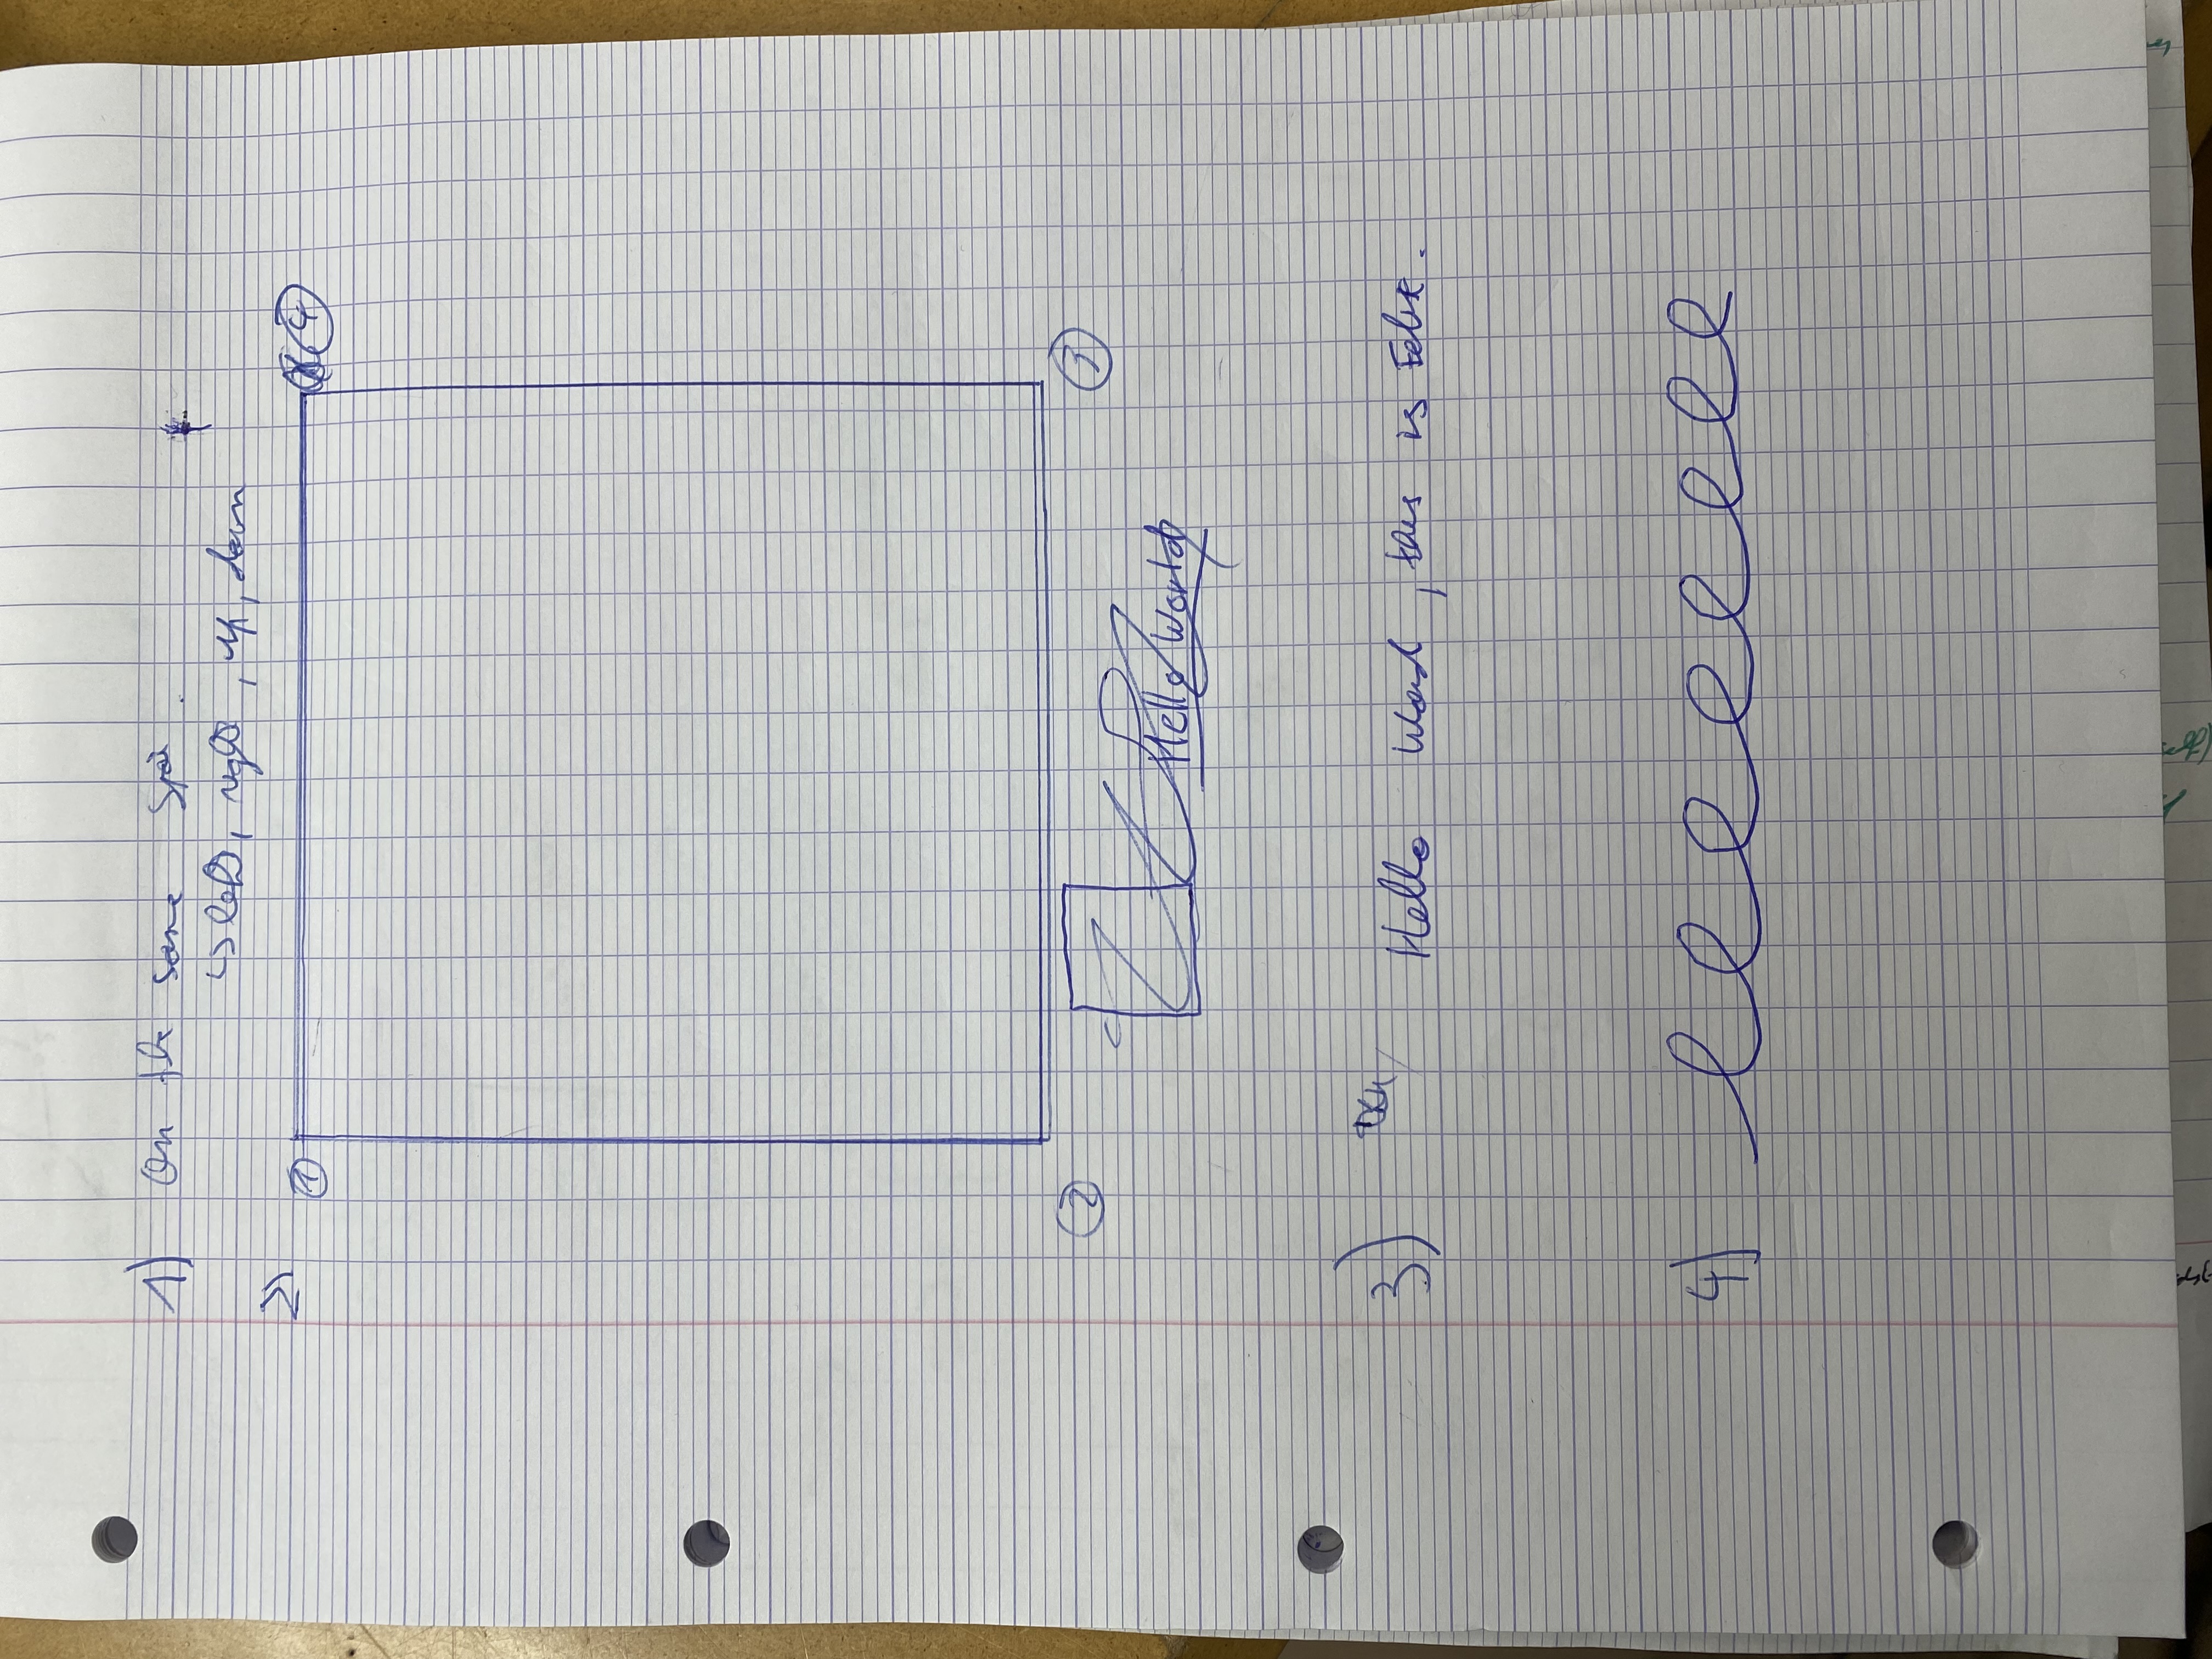 1) On the same spot.
↳ left, right, up, down
2)
① ④
② ③
Hello World
3) Hello World, this is Felix.
4) eeeeeeee